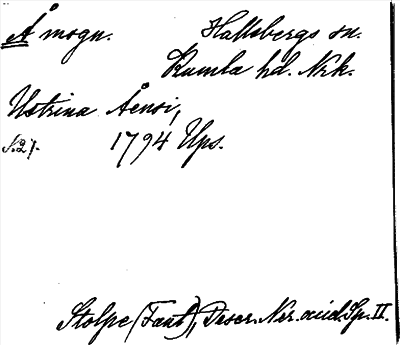 Å mogn. Hallsbergs sn.
Kumla hd. Nrk.
Ustrina Åensi,
s. 27. 1794 Ups.
Stolpe (Fant), Descr. Ner. acid. Sp. II.